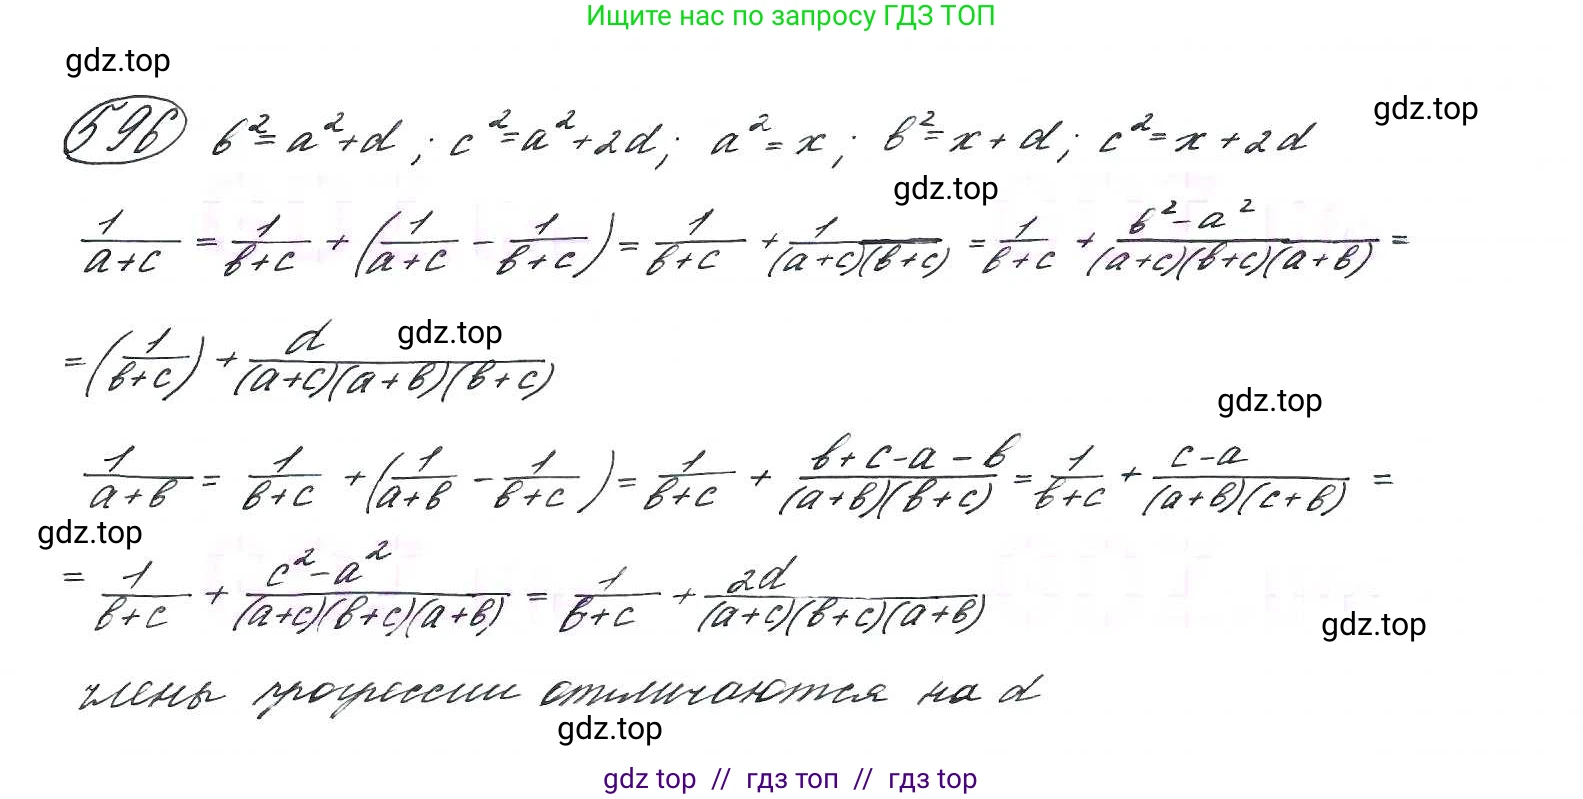 Ищите нас по запросу ГДЗ ТОП
gdz.top
gdz.top
596 b²=a²+d; c²=a²+2d; a²=x; b²=x+d; c²=x+2d
gdz.top
1/(a+c) = 1/(b+c) + (1/(a+c) - 1/(b+c)) = 1/(b+c) + 1/((a+c)(b+c)) = 1/(b+c) + (b²-a²)/((a+c)(b+c)(a+b)) =
= (1/(b+c)) + d/((a+c)(a+b)(b+c))
gdz.top
gdz.top
1/(a+b) = 1/(b+c) + (1/(a+b) - 1/(b+c)) = 1/(b+c) + (b+c-a-b)/((a+b)(b+c)) = 1/(b+c) + (c-a)/((a+b)(c+b)) =
gdz.top
= 1/(b+c) + (c²-a²)/((a+c)(b+c)(a+b)) = 1/(b+c) + 2d/((a+c)(b+c)(a+b))
gdz.top
члены прогрессии отличаются на d
gdz.top
gdz top // гдз топ // гдз top